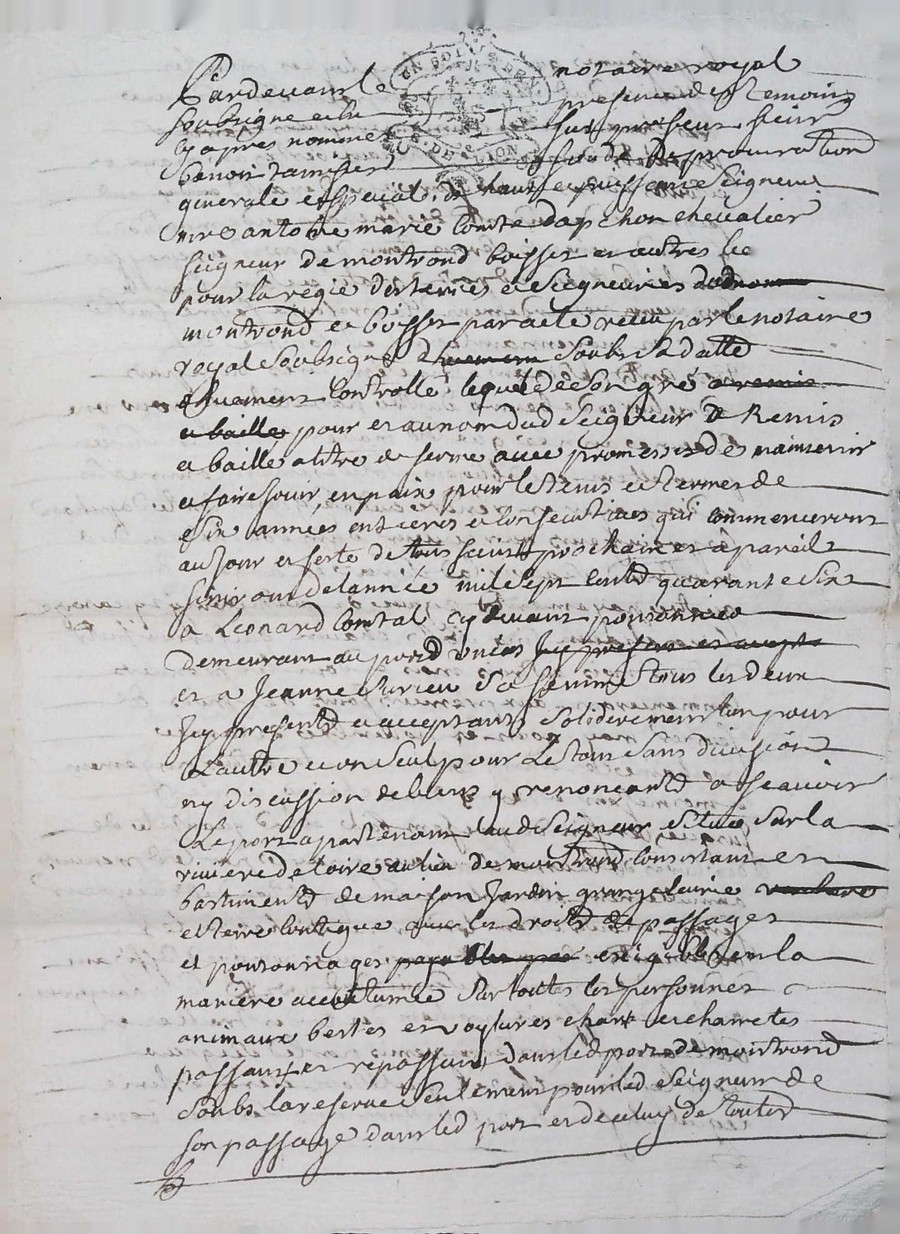 Pardevant le notaire royal
soubsigne et en presence des temoins
cy apres nommes fut present sieur
benoit fondé de procuration
generale et special de haut et puissant Seigneur
mre antoine marie Comte dapchon chevalier
seigneur de montrond boisset et autres lie
pour la regie des terres et Seigneuries
montrond et boisset par acte receu par le notaire
royal Soubsigné Soubs Sa datte
duement Controllé lequel de Son gré a remis
et baille pour et au nom dud Seigneur a Remis
et baille a titre de ferme avec promesses de maintenir
et faire jouir en paix pour le tems et terme de
Six années entieres et Consecutives qui commenceront
au jour et feste de tous saints prochain et a pareil
jour de lannée mil sept cents quarante Six
a Leonard Comtal cy devant pontonnier
demeurant au port icy present et accept
et a Jeanne Sa femme tous les deux
Icy presents et acceptants Solidairement lun pour
Lautre et un Seul pour Le tout Sans division
ny discussion de biens y renonceants a Scavoir
Le port apartenant aud Seigneur Situé Sur la
riviere de loire au lieu de montrond Consistant en
bastiments de maison Jardin grange Ecurie
et terre Contigue avec les droits de passages
et pontonnages exigibles en la
maniere accoutumée Sur toutes les personnes
animaux bestes et voytures chars et charretes
passants et repassants dans led port de montrond
Soubs la reserve Seulement pour led Seigneur de
Son passage dans led port et de celuy de toutes